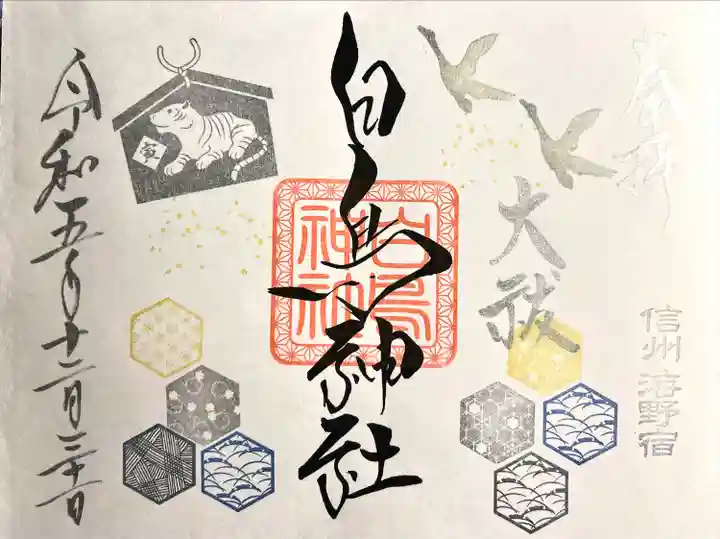 奉拝
大祓
信州 海野宿
白鳥神社
白鳥
神社
寅
令和五年十二月三十一日